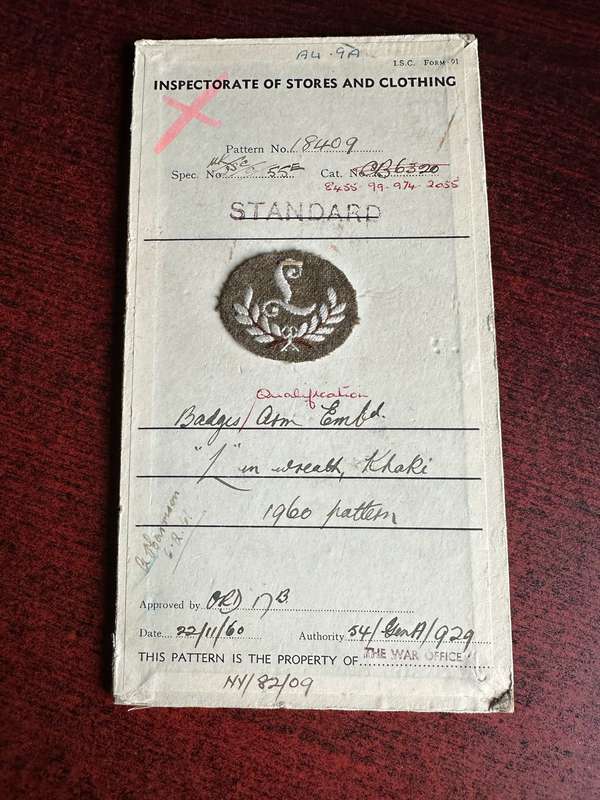 A4 · 9A
I.S.C. FORM 91
INSPECTORATE OF STORES AND CLOTHING
Pattern No. 18409
Spec. No. 55E Cat. No. CB6320
8455-99-974-2055
STANDARD
L
Qualification
Badges/Arm Embd.
"L" in wreath, Khaki
1960 pattern
Approved by ORD 17B
Date 22/11/60 Authority 54/Gen A/929
THIS PATTERN IS THE PROPERTY OF THE WAR OFFICE
NY/82/09